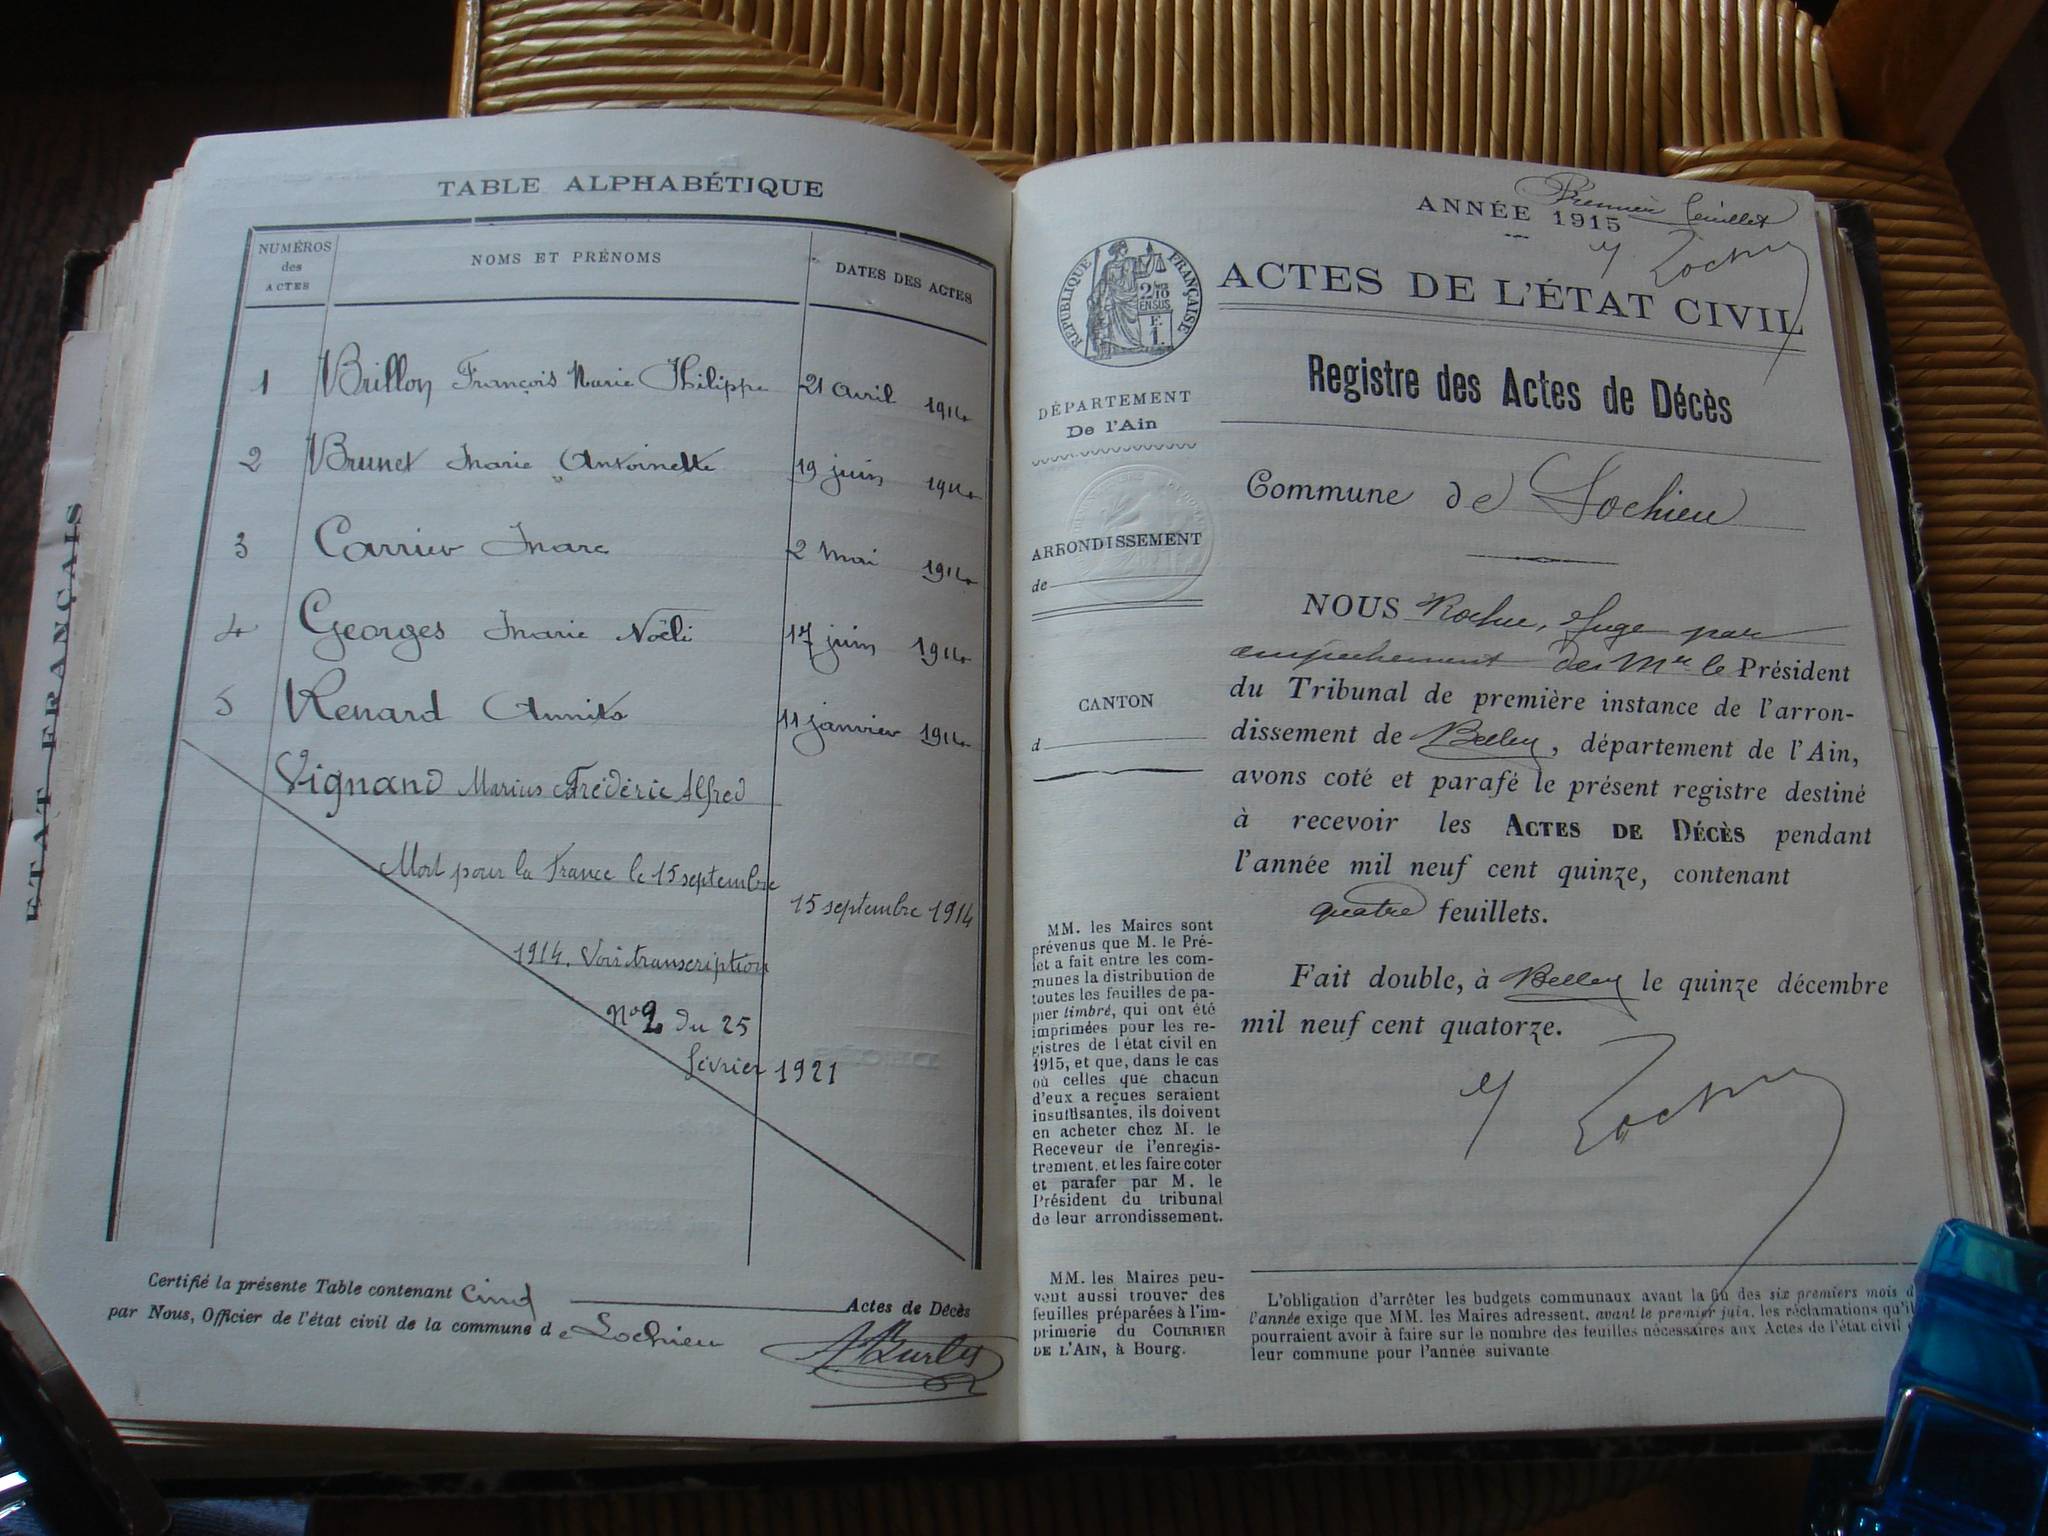 ETAT FRANÇAIS
TABLE ALPHABÉTIQUE
NUMÉROS
des
ACTES
NOMS ET PRÉNOMS
DATES DES ACTES
1 Brillon François Marie Philippe 21 avril 1914
2 Brunet Marie Antoinette 19 juin 1914
3 Carrier Marc 2 Mai 1914
4 Georges Marie Noëli 17 juin 1914
5 Renard Annita 11 janvier 1914
Vignand Marius Frédéric Alfred
Mort pour la France le 15 septembre
15 septembre 1914
1914. Voir transcription
N° 2 du 25
février 1921
Certifié la présente Table contenant cinq Actes de Décès
par Nous, Officier de l'état civil de la commune de Lochieu
Premier feuillet
ANNÉE 1915
ACTES DE L'ÉTAT CIVIL
RÉPUBLIQUE FRANÇAISE
2/10
EN SUS
E.
1.
Registre des Actes de Décès
DÉPARTEMENT
De l'Ain
Commune de Lochieu
ARRONDISSEMENT
de
CANTON
d
NOUS Juge par
empêchement de Mr le Président
du Tribunal de première instance de l'arron-
dissement de Belley, département de l'Ain,
avons coté et parafé le présent registre destiné
à recevoir les ACTES DE DÉCÈS pendant
l'année mil neuf cent quinze, contenant
quatre feuillets.
Fait double, à Belley le quinze décembre
mil neuf cent quatorze.
MM. les Maires sont
prévenus que M. le Pré-
fet a fait entre les com-
munes la distribution de
toutes les feuilles de pa-
pier timbré, qui ont été
imprimées pour les re-
gistres de l'état civil en
1915, et que, dans le cas
où celles que chacun
d'eux a reçues seraient
insuffisantes, ils doivent
en acheter chez M. le
Receveur de l'enregis-
trement, et les faire coter
et parafer par M. le
Président du tribunal
de leur arrondissement.
MM. les Maires peu-
vent aussi trouver des
feuilles préparées à l'im-
primerie du COURRIER
DE L'AIN, à Bourg.
L'obligation d'arrêter les budgets communaux avant la fin des six premiers mois d
l'année exige que MM. les Maires adressent, avant le premier juin, les réclamations qu'il
pourraient avoir à faire sur le nombre des feuilles nécessaires aux Actes de l'état civil
leur commune pour l'année suivante